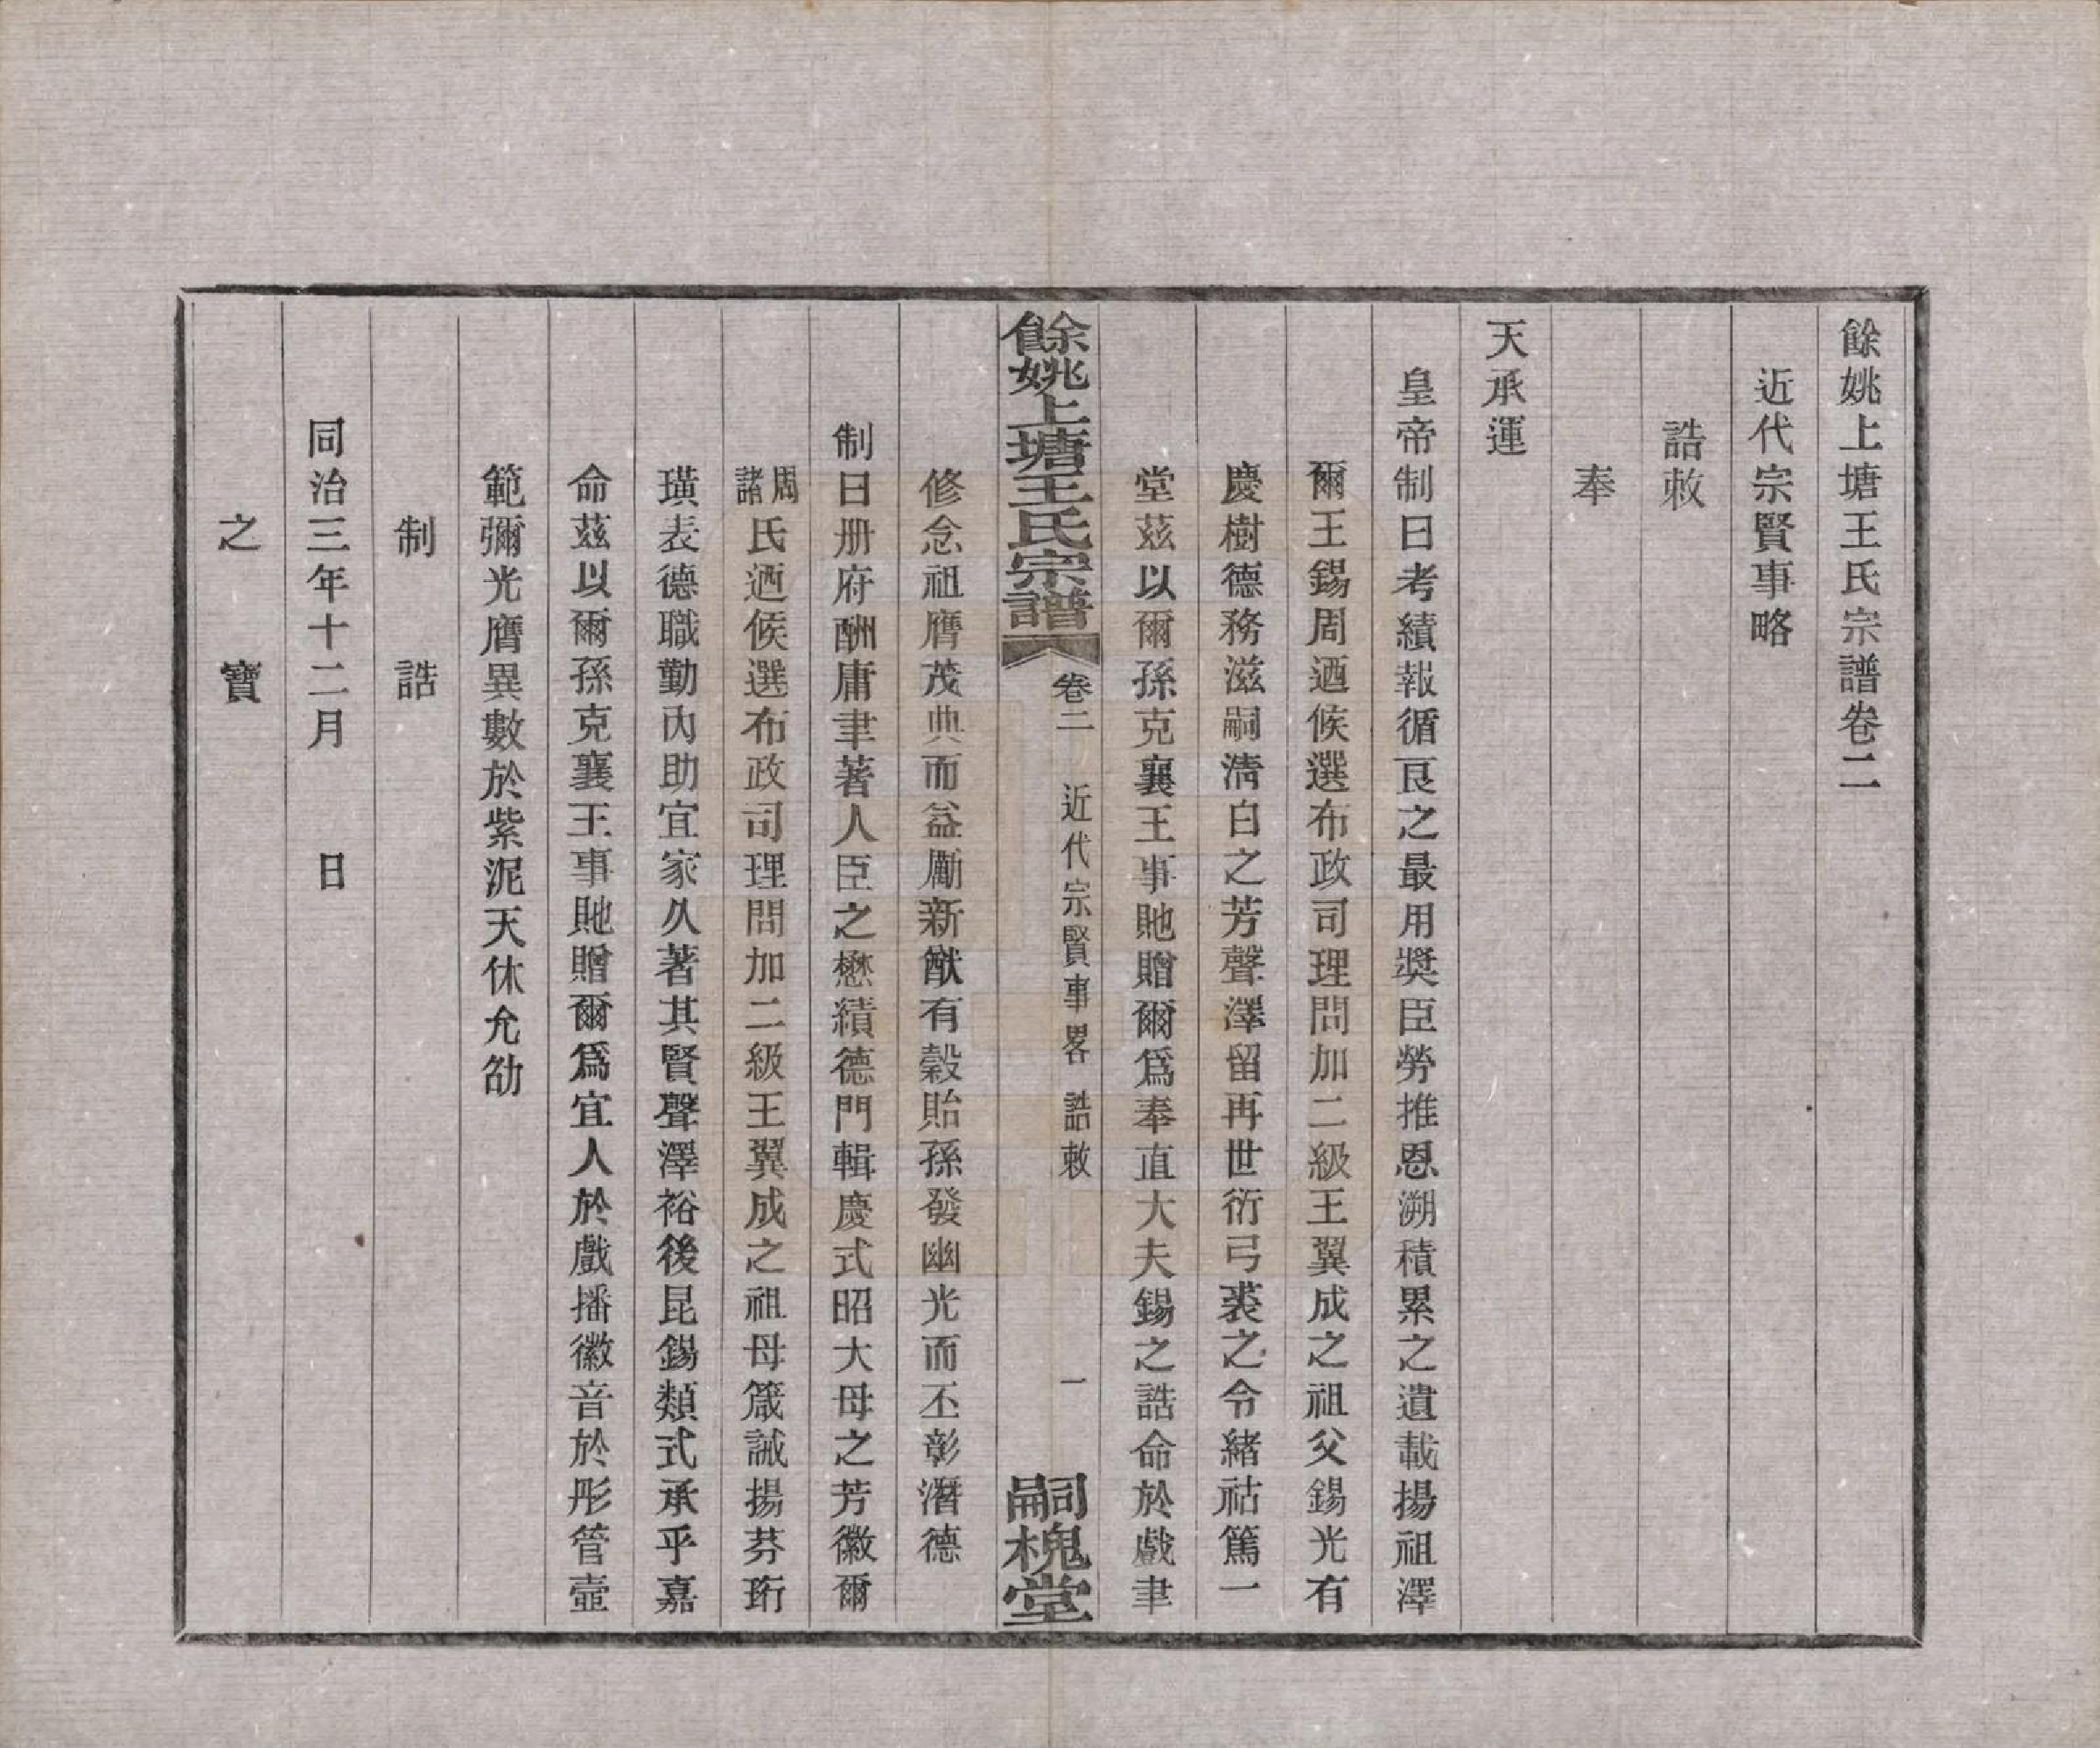 餘姚上塘王氏宗譜卷二
近代宗賢事略
誥敕
奉
天承運
皇帝制曰考績報循良之最用奬臣勞推恩溯積累之遺載揚祖澤
爾王錫周迺候選布政司理問加二級王翼成之祖父錫光有
慶樹德務滋嗣淸白之芳聲澤留再世衍弓裘之令緒祜篤一
堂茲以爾孫克襄王事貤贈爾爲奉直大夫錫之誥命於戲聿
修念祖膺茂典而益勵新猷有穀貽孫發幽光而丕彰潛德
制曰册府酬庸聿著人臣之懋績德門輯慶式昭大母之芳徽爾
周諸氏迺候選布政司理問加二級王翼成之祖母箴誡揚芬珩
璜表德職勤內助宜家久著其賢聲澤裕後昆錫類式承乎嘉
命茲以爾孫克襄王事貤贈爾爲宜人於戲播徽音於彤管壼
範彌光膺異數於紫泥天休允劭
制誥
同治三年十二月　日
之寶
餘姚上塘王氏宗譜
卷二　近代宗賢事畧　誥敕　一
嗣槐堂